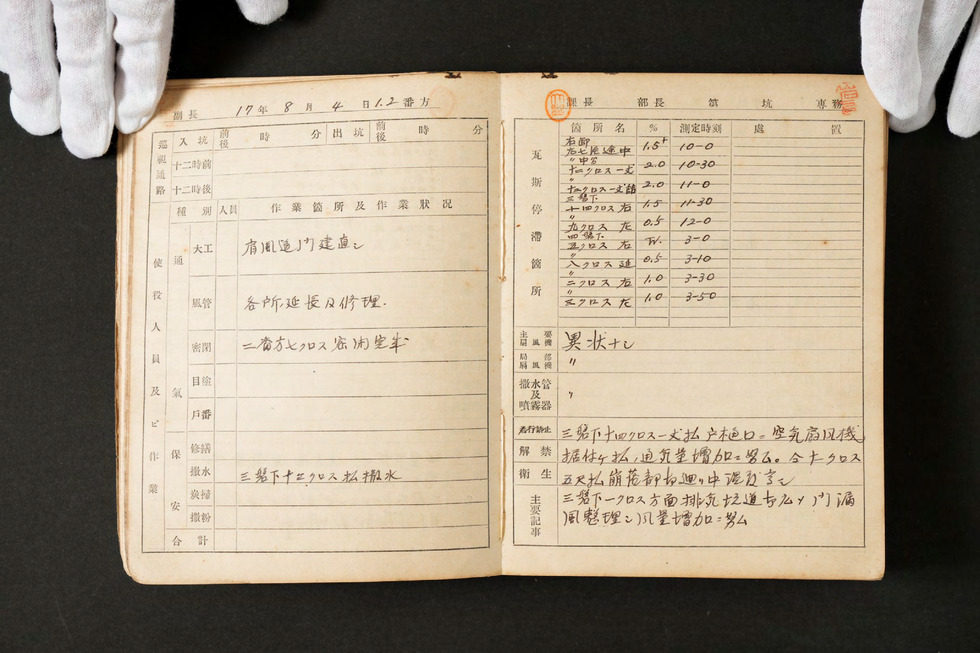 副長 17年8月4日1.2番方
巡視通路 入坑 前後 時 分 出坑 前後 時 分
十二時前
十二時後
種別 人員 作業箇所及作業狀况
使役人員及ビ作業
通氣
大工 肩風道門建直シ
風管 各所延長及修理.
密閉 二番方七クロス密閉完半
目塗
戶番
保安
修繕
撒水 三盤下十三クロス払撒水
炭掃
撒粉
合計
課長 部長 第 坑 專務
瓦斯停滯箇所
箇所名 % 測定時刻 處置
右部
右七尺途中 1.5+ 10-0
〃中分
十二クロス一丈 2.0 10-30
〃
十二クロス一丈詰 2.0 11-0
三盤下
十四クロス右 1.5 11-30
〃
九クロス左 0.5 12-0
四盤下
五クロス右 Tr. 3-0
〃
八クロス延 0.5 3-10
〃
二クロス右 1.0 3-30
〃
三クロス左 1.0 3-50
主要扇風機 異状ナシ
局部扇風機 〃
撒水管及噴霧器 〃
発行諸止 三盤下十四クロス一丈払戸樋口ニ空気扇風機
解禁 据付ケ払ノ通気量増加ニ努ム。今十一クロス
衛生 五尺払崩落部
主要記事
三盤下一クロス方面排気坑道 門漏
風整理シ風量増加ニ努ム